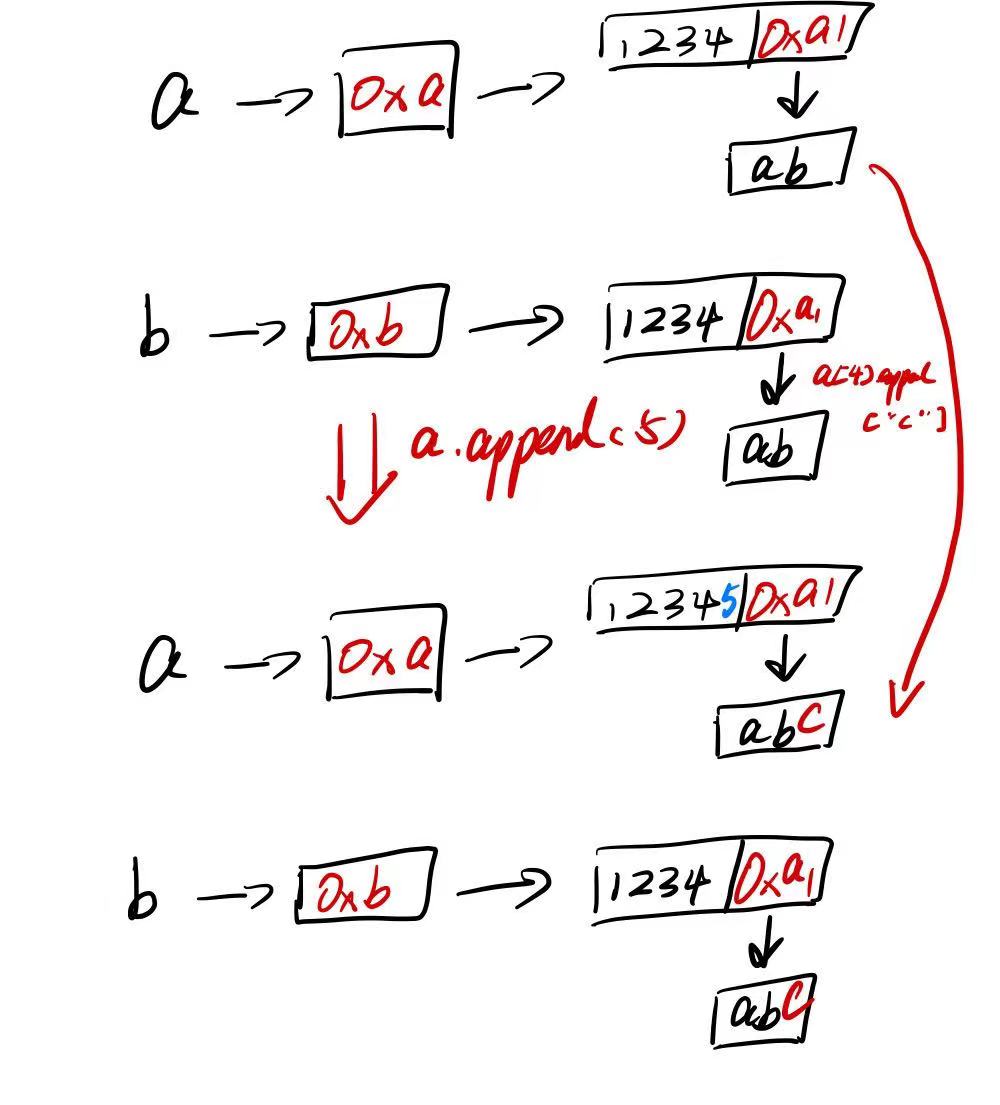 a → 0xa → 1234 0xa1
ab
b → 0xb → 1234 0xa1
a[4].appel
["c"]
ab
a.append(5)
a → 0xa → 12345 0xa1
abc
b → 0xb → 1234 0xa1
abc